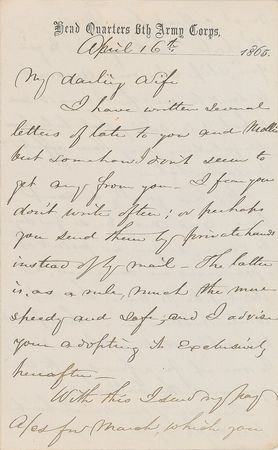 Head Quarters 6th Army Corps,
April 16th 1865.
My darling Wife
I have written several
letters of late to you and Mollie
but somehow I don't seem to
get any from you - I fear you
don't write often; or perhaps
you send them by private hands
instead of by mail - The latter
is, as a rule, much the more
speedy and safe; and I advise
your adopting it exclusively
hereafter -
With this I send my pay
a/cs for March, which you